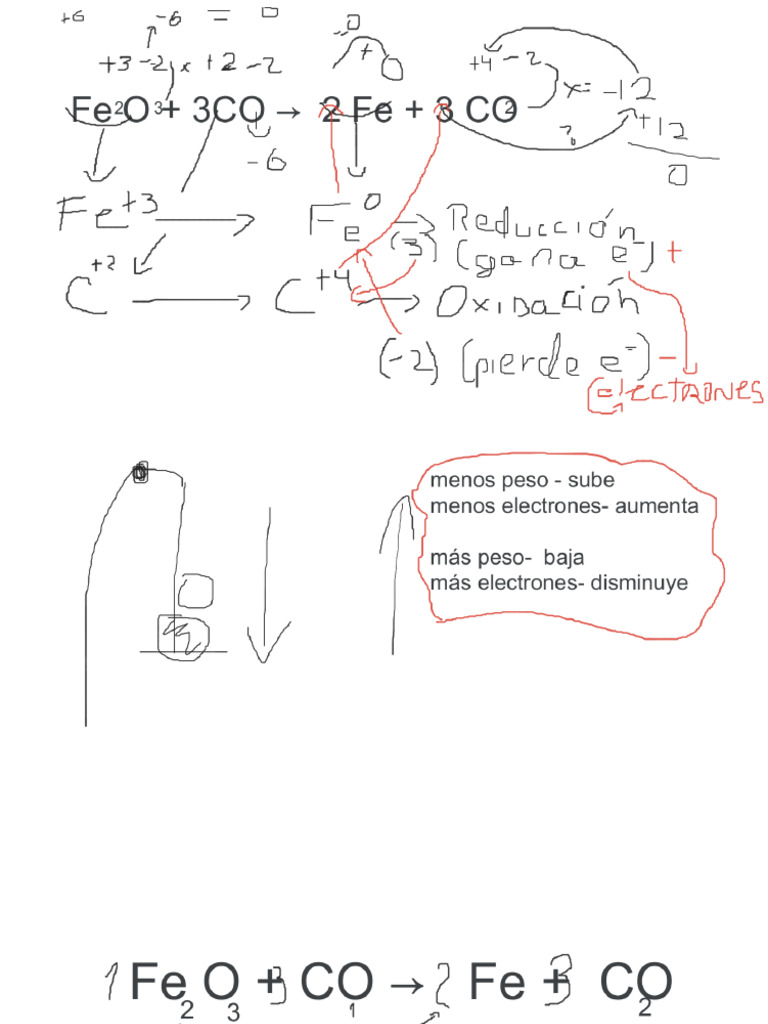 +6 -6 = 0
+3 -2 x +2 -2
0 + 0
+4 -2 x= -12
Fe2O3 + 3CO → 2 Fe + 3 CO2
+12
-6
0
Fe+3 → Fe0 → Reducción
(3) (gana e-) +
C+2 → C+4 → Oxidación
(-2) (pierde e-) -
(electrones
menos peso - sube
menos electrones- aumenta
más peso- baja
más electrones- disminuye
1 Fe2O3 + 3 CO1 → 2 Fe + 3 CO2